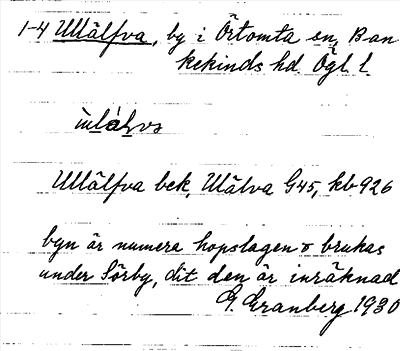 1-4 Ullälfva, by i Örtomta sn, Ban
kekinds hd. Ögl. l.
Ullälfva bek, Ulälva G45, kb 926
byn är numera hopslagen o brukas
under Sörby, dit den är inräknad
G. Granberg 1930